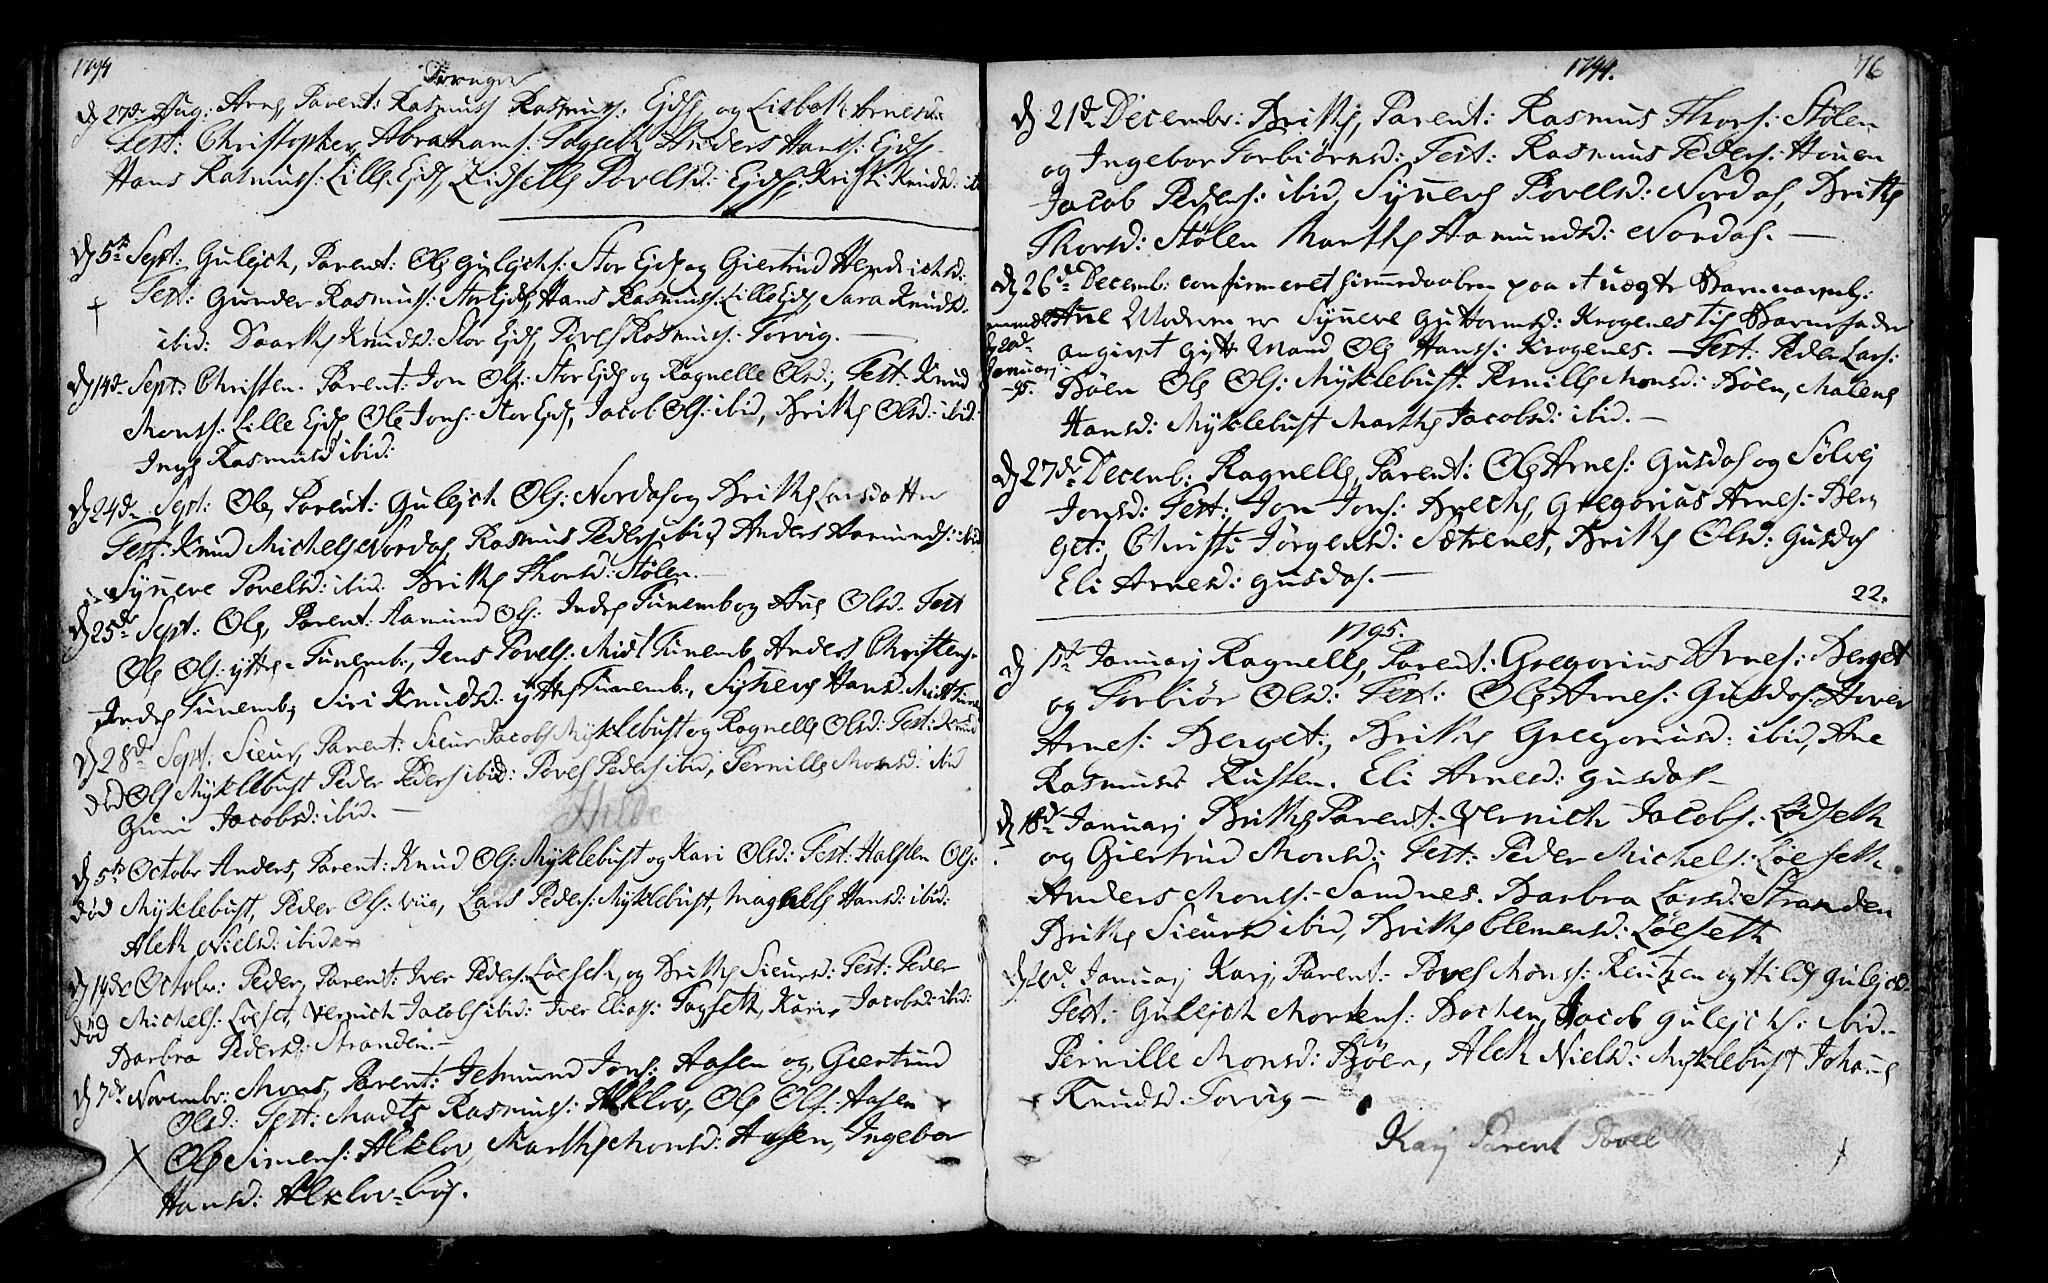 1794
Torvigen
D 27de Aug: Arne, Parent: Rasmus Rasmuss: Ejde og Lisbeth Arnesd:
Test: Christopher Abrahams: Fagseth Anders Hanss: Ejde
Hans Rasmuss: Lille Ejde, Zidselle Povelsd: Ejde, Kristi Knudsd: ib
D 5te Sept: Gulejch, Parent: Ole Gulejchs: Stor Ejde og Giertrud Hendrichsd:
Test: Gunder Rasmuss: Stor Ejde, Hans Rasmuss: Lille Ejde Sara Knudsd:
ibid: Daarthe Knudsd: Stor Ejde, Povel Rasmuss: Torvig. —
D 14de Sept: Christen. Parent: Jon Ols: Stor Ejde og Ragnelle Olsd:, Test: Knud
Monss: Lille Ejde, Ole Jons: Stor Ejde, Jacob Ols: ibid, Brithe Olsd: ibid:
Inge Rasmusd ibid:
D 24de Sept: Ole, Parent: Gulejch Ols: Nordas og Brithe Larsdatter
Test: Knud Michels Nordas, Rasmus Peders ibid Anders Aamunds: ibid
Synneve Povelsd: ibid. Brithe Thorsd: Stølen. —
D 25de Sept: Ole, Parent: Aamund Ols: Indre Tunemb og Ane Olsd. Test
Ole Ols: ytte Tunemb:, Jens Povels: Midt Tunemb, Anders Christens:
Indre Tunemb; Siri Knudsd: ytte Tunemb:, Synneve Hansd: Midt Tune
D 28de Sept: Sieur, Parent: Sieur Jacobs Myklebust og Ragnelle Olsd: Test: Knud
død Ols Myklebust Peder Peders ibid: Povel Peders ibid, Pernille Monsd: ibid
Guni Jacobsd: ibid. —
Hilde
D 5te Octobr Anders, Parent: Knud Ols: Myklebust og Kari Olsd: Test: Halsten Ols:
død Myklebust, Peder Ols: Viig, Lars Peders: Myklebust, Magnelle Hansd: ibid:
Aleth Nielsd: ibid —
D 19de Octobr: Peder, Parent: Iver Peders: Løeseth, og Brithe Sieursd: Test: Peder
død Michels: Løeset, Vernich Jacobs ibid: Iver Elias: Fagseth, Kari Jacobsd: ibid:
Barbra Pedersd: Stranden. —
D 7de Novembr: Mons, Parent: Jetmund Jons: Aasen og Giertrud
Olsd: Test: Madts Rasmuss: Alklov, Ole Ols: Aasen
Ole Simens: Alklov, Marthe Monsd: Aasen, Ingebor
Hansd: Alklov-bøe.
1794.
76
D 21de Decembr: Brithe, Parent: Rasmus Thors: Stølen
og Ingebor Torbiørnsd: Test: Rasmus Peders: Houen
Jacob Peders: ibid, Synneve Povelsd: Nordas, Brithe
Thorsd: Stølen Marthe Aamundsd: Nordas. —
D 26de Decemb: confirmeret hiemmedaaben paa et uægte Barn navnl:
Ane Moderen er Synneve Guttormsd: Krogenes til Barnefader
angivet gift Mand Ole Hanss: Krogenes. — Test: Peder Lars:
D 20de
Januarj
95.
Bøen Ole Ols: Myklebust. Pernille Monsd: Bøen, Malene
Hansd: Myklebust Marthe Jacobsd: ibid. —
D 27de Decemb: Ragnelle, Parent: Ole Arnes: Gusdas og Sølvej
Jonsd: Test: Jon Jons: Breche, Gregorius Arnes: Ber
get:, Christi Jørgensd: Sætrenes, Brithe Olsd: Gusdas
Eli Arnesd: Gusdas. —
22.
1795.
D 1ste Januarj Ragnelle, Parent: Gregorius Arnes: Berget
og Torbiør Olsd: Test: Ole Arnes: Gusdas Aver
Arnes: Berget:, Brithe Gregoriusd: ibid, Ane
Rasmusd: Rusten. Eli Arnesd: Gusdas —
D 18de Januarj Brithe Parent: Vernich Jacobs: Lødseth
og Giertrud Monsd: Test: Peder Michels: Løeseth
Anders Monss: Sandnes. Barbra Larsd: Stranden
Brithe Sieursd ibid, Brithe Clemensd: Løeseth
D 20de Januarj Karj Parent: Povel Monss: Reitzen og Hilde Gulejchd:
Test: Gulejch Mortens: Bochen, Jacob Gulejchs: ibid. —
Pernille Monsd: Bjøen, Aleth Nielsd: Myklebust Johane
Knudsd: Torvig —
Karj Parent Povel